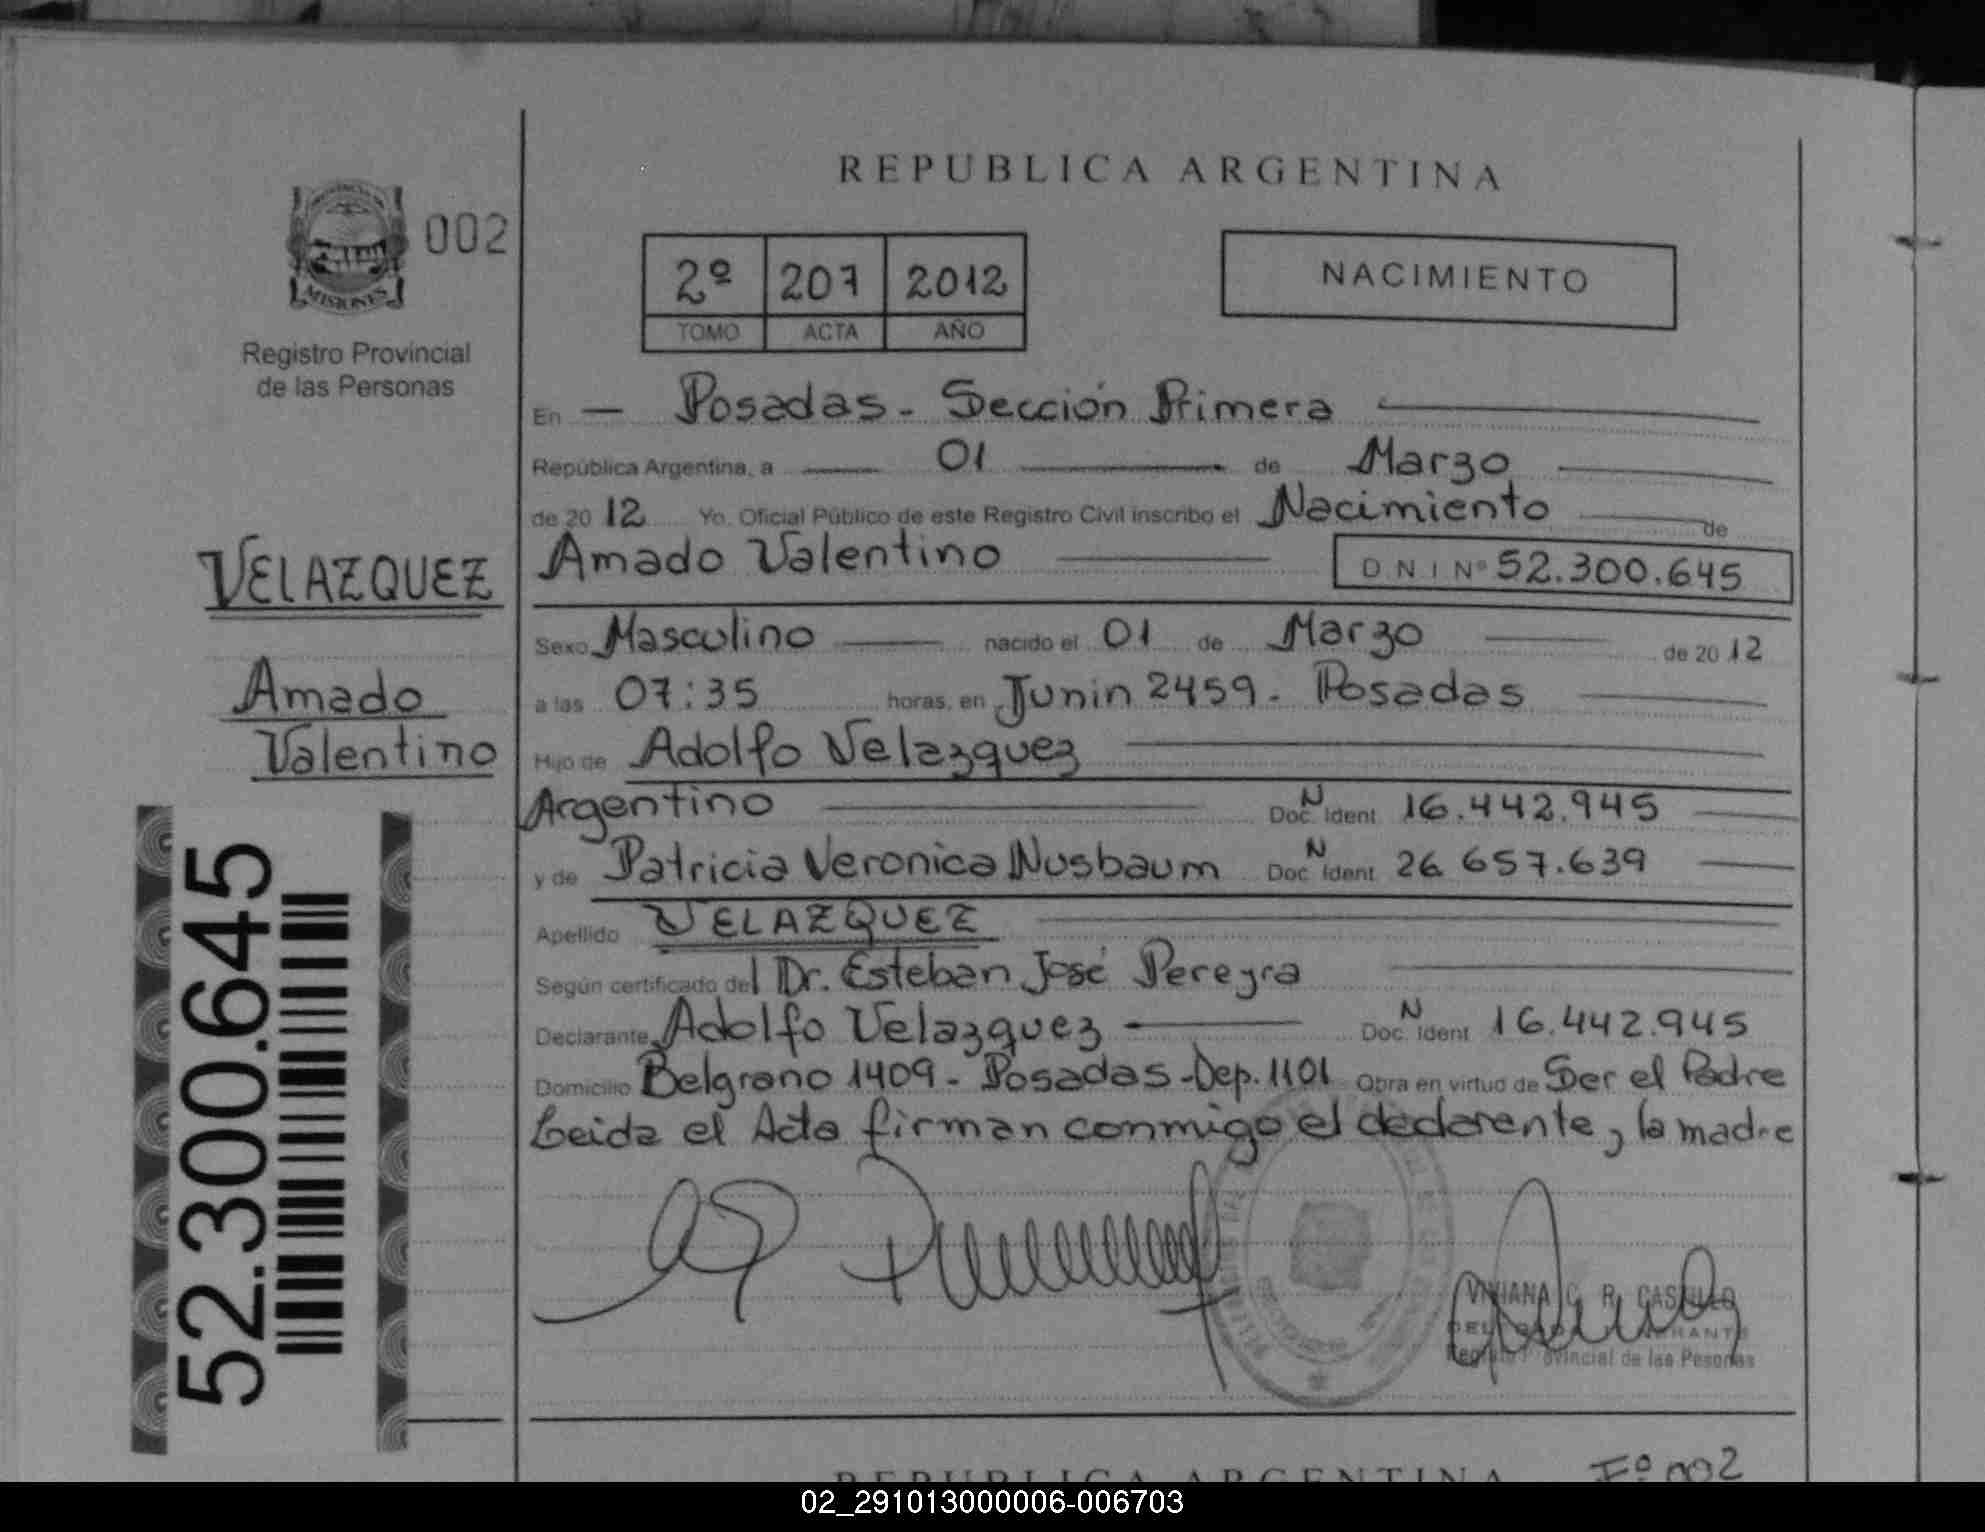 REPUBLICA ARGENTINA
PROVINCIA DE
MISIONES
002
Registro Provincial
de las Personas
2º 207 2012
TOMO ACTA AÑO
NACIMIENTO
En — Posadas - Sección Primera
República Argentina, a 01 de Marzo
de 2012 Yo. Oficial Público de este Registro Civil inscribo el Nacimiento de
Amado Valentino DNI Nº 52.300.645
VELAZQUEZ
Amado
Valentino
Sexo Masculino nacido el 01 de Marzo de 2012
a las 07:35 horas, en Junin 2459 - Posadas
Hijo de Adolfo Velazquez
Argentino Doc. N Ident 16.442.945
y de Patricia Veronica Nusbaum Doc. N Ident 26 657.639
Apellido VELAZQUEZ
Según certificado del Dr. Esteban José Pereyra
Declarante Adolfo Velazquez Doc. N Ident 16.442.945
Domicilio Belgrano 1409 - Posadas - Dep. 1101 Obra en virtud de Ser el Padre
Leida el Acta firman conmigo el declarante, la madre
52.300.645
VIVIANA C. R. CASTILLO
Registro Provincial de las Pesonas
REPUBLICA ARGENTINA Fº 002
02_291013000006-006703